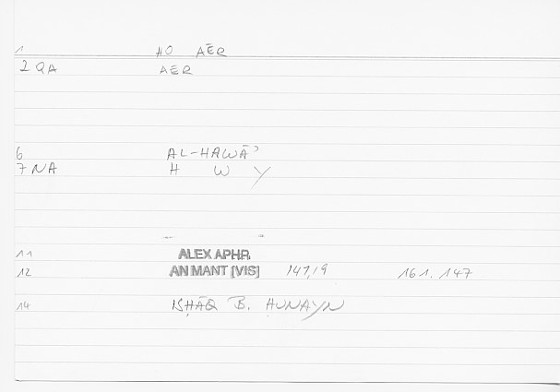 1 HO AĒR
2 QA AER
6 AL-HAWĀʾ
7 NA H W Y
11 ALEX APHR
12 AN MANT [VIS] 141,19 161. 147
14 ISḤĀQ B. ḤUNAYN